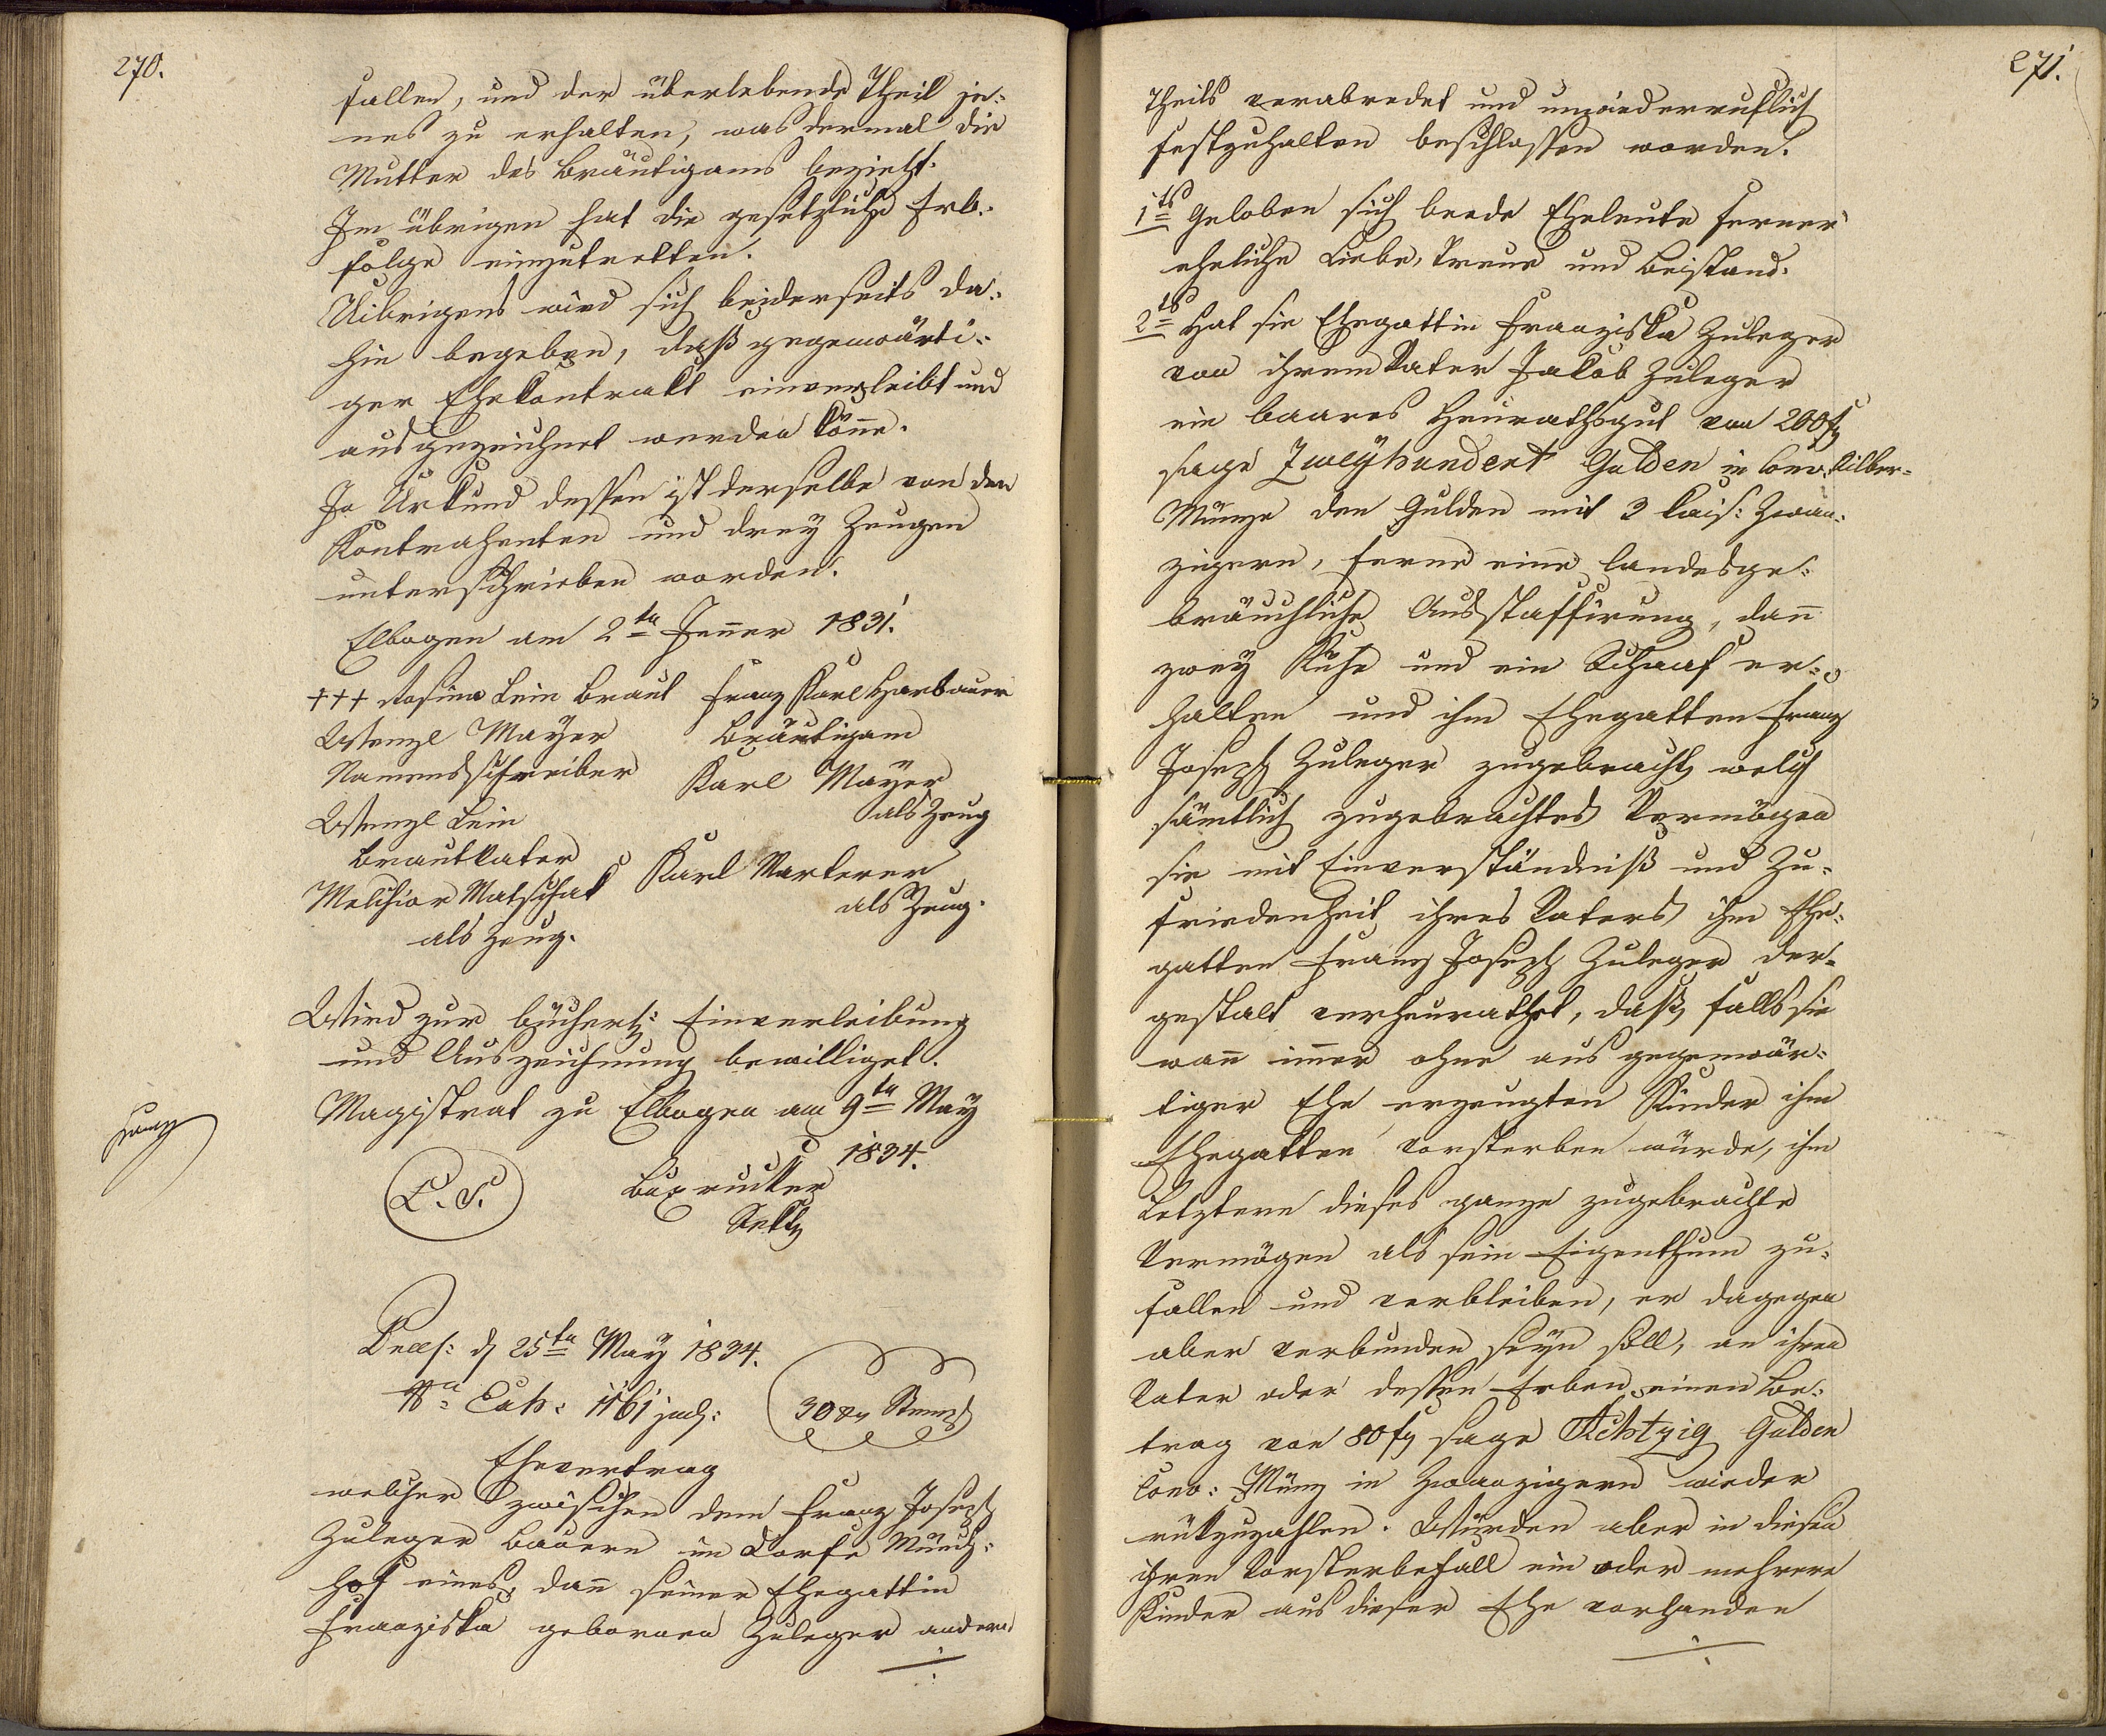 270.
fallen, und der überlebende Theil je-
nes zu erhalten, was dermal die
Mutter des Bräutigams bezieht.
Im übrigen hat die gesetzliche Erb-
folge einzutretten.
Uibrigens wird sich beiderseits da-
hin begeben, daß gegenwärti-
ger Ehekontrakt einverleibt und
ausgezeichnet werden könne.
In Urkund dessen ist derselbe von den
Kontrahenten und drey Zeugen
unterschrieben worden.
Elbogen am 2ten Jenner 1831.
+++ Rosina Lein Braut Franz Karl Harbauer
Wenzl Mayer Bräutigam
Namensschreiber Karl Mayer
als Zeug
Wenzl Lein
Brautvater Karl Marterer
Melchior Matschak als Zeug.
als Zeug.
Wird zur bücherl: Einverleibung
und Auszeichnung bewilliget.
Magistrat zu Elbogen am 9ten May
1834.
L. S.
Præs: d 25ten May 1834.
No Exh: 1161 jud:
30 xr Stempl
Ehevertrag
welcher zwischen dem Franz Joseph
Zuleger Bauern im Dorfe Münch-
hof eines, dann seiner Ehegattin
Franziska gebornen Zuleger andern
271.
Theils verabredet und unwiederruflich
festzuhalten beschlossen worden.
1ts Geloben sich beede Eheleute ferner
eheliche Liebe, Treue und Beistand.
2ts Hat sie Ehegattin Franziska Zuleger
von ihrem Vater Jakob Zuleger
ein baares Heurathsgut von 200 f
sage Zweyhundert Gulden in Conv. Silber-
Münze den Gulden mit 3 kais: Zwan-
zigern, ferner eine landesge-
bräuchliche Ausstaffirung, dann
zwey Kühe und ein Schaaf er-
halten und ihm Ehegatten Franz
Joseph Zuleger zugebracht, welch
sämtlich zugebrachtes Vermögen
sie mit Einverständniß und Zu-
friedenheit ihres Vaters ihm Ehe-
gatten Franz Joseph Zuleger der-
gestalt verheurathet, daß, falls sie
wann immer ohne aus gegenwär-
tiger Ehe erzeugten Kinder ihm
Ehegatten vorsterben würde, ihm
Letztern dieses ganze zugebrachte
Vermögen als sein Eigenthum zu-
fallen und verbleiben, er dagegen
aber verbunden seyn soll, an ihren
Vater oder dessen Erben einen Be-
trag von 80 f sage Achtzig Gulden
Conv: Münz in Zwanzigern wieder
rückzuzahlen. Würden aber in diesen
ihren Vorsterbefall ein oder mehrere
Kinder aus dieser Ehe vorhanden